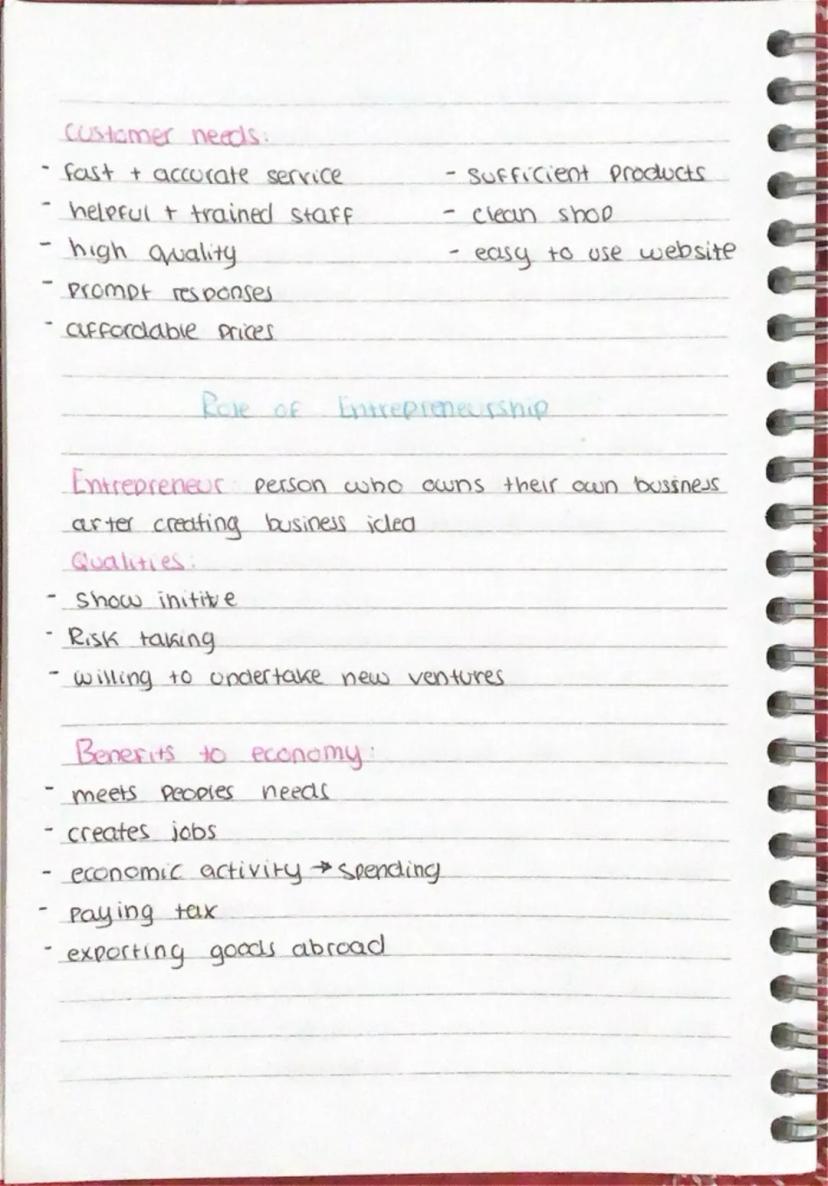 Customer needs:
- fast + accurate service
- helpful + trained staff
- high quality
- prompt responses
- affordable prices
- sufficient products
- clean shop
- easy to use website
Role of Entrepreneurship
Entrepreneur: person who owns their own bussiness
after creating business idea
Qualities:
- Show inititve
- Risk taking
- willing to undertake new ventures
Benefits to economy:
- meets peoples needs
- creates jobs
- economic activity → spending
- paying tax
- exporting goods abroad